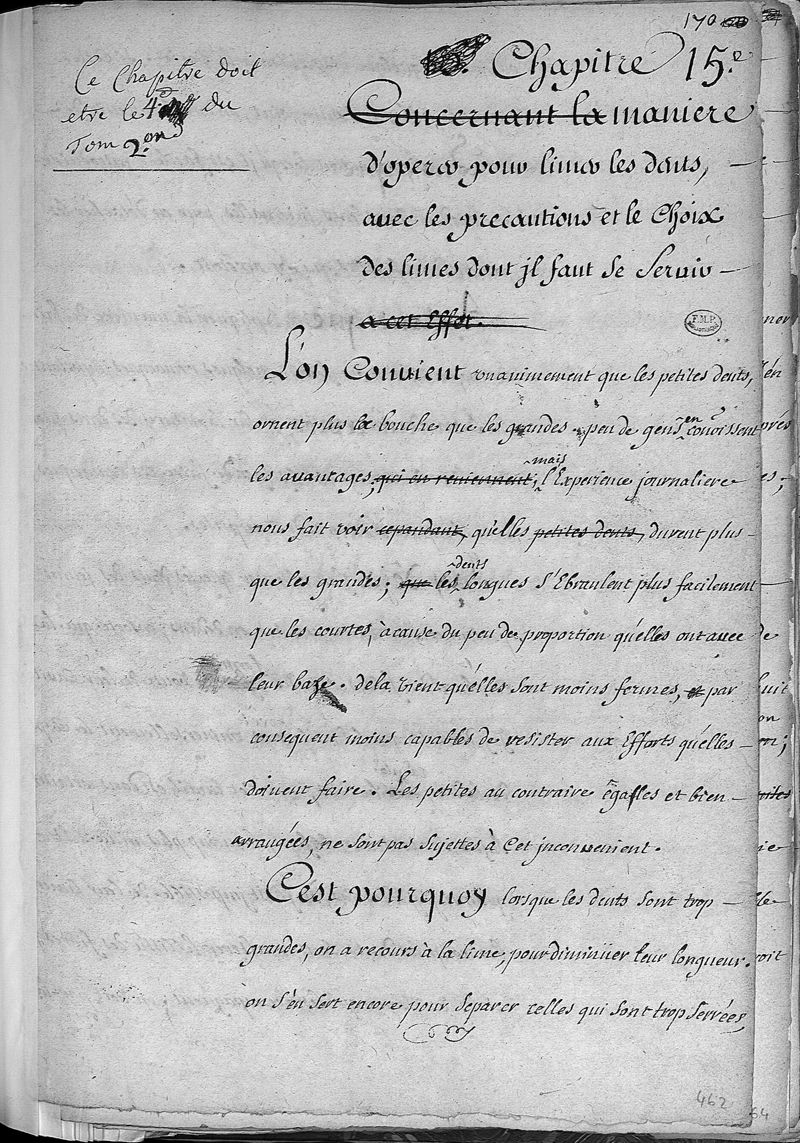 170
Ce Chapitre doit
etre le 4e du
Tom 2.ond
Chapitre 15.e
Concernant la maniere
d'operer pour limer les dents,
avec les precautions et le Choix
des limes dont jl faut se servir
a cet Effet.
F.M.P.
L'on Convient unanimement que les petites dents,
ornent plus la bouche que les grandes peu de gens en conoissent
les avantages, qui en reviennent, mais l'Experience journaliere
nous fait voir cependant, qu'elles petites dents, durent plus
que les grandes; que les dents longues s'Ebranlent plus facilement
que les courtes, à cause du peu de proportion qu'elles ont avec
leur baze. dela vient qu'elles sont moins fermes, et par
consequent moins capables de resister aux Efforts qu'elles
doivent faire. Les petites au contraire égalles et bien
arrangées, ne sont pas sujettes à Cet jnconvenient.
C'est pourquoy lorsque les dents sont trop
grandes, on a recours à la lime, pour diminüer leur longueur.
on s'en sert encore pour separer celles qui sont trop serrées,
462
64